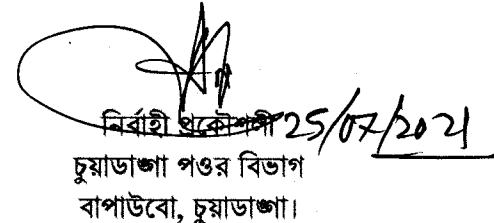 নির্বাহী প্রকৌশলী 25/07/2021
চুয়াডাঙ্গা পওর বিভাগ
বাপাউবো, চুয়াডাঙ্গা।